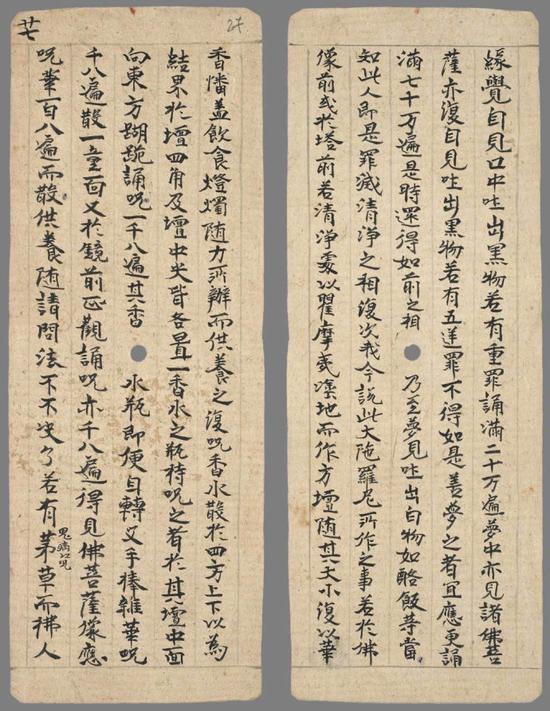 緣覺自見口中吐出黑物若有重罪誦滿二十万遍夢中亦見諸佛菩
薩亦復自見吐出黑物若有五逆罪不得如是善夢之者宜應更誦
滿七十万遍是時還得如前之相 乃至夢見吐出白物如酪飯等當
知此人即是罪滅清淨之相復次我今說此大陁羅尼所作之事若於佛
像前或於塔前若清淨處以瞿摩夷塗地而作方壇随其大小復以華
廿七
27
香幡盖飲食燈燭随力所辦而供養之復呪香水散於四方上下以為
結界於壇四角及壇中央皆各置一香水之瓶持呪之者於其壇中面
向東方䠒跪誦呪一千八遍其香 水瓶即便自轉叉手捧雜華呪
千八遍散一童面又於鏡前正觀誦呪亦千八遍得見佛菩薩像應
呪華一百八遍而散供養随請問法不不决了若有茅草而拂人
鬼病以呪